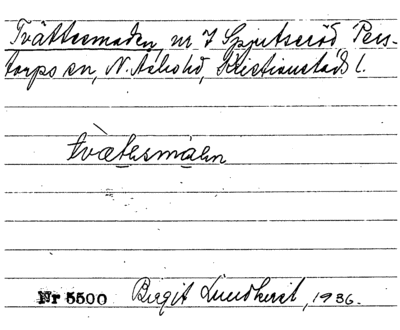 Tvättesmaden, nr 7 Spjutseröd, Pers-
torps sn, N. Åsbo hd, Kristianstads l.
tvæt̀esmaɑen
Nr 5500 Birgit Lundkvist, 1936.